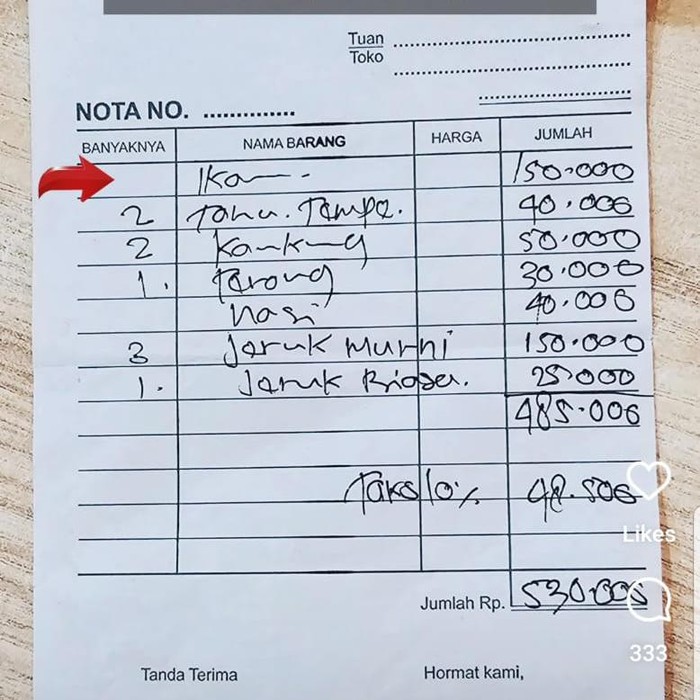 Tuan
Toko
NOTA NO. ...............
BANYAKNYA NAMA BARANG HARGA JUMLAH
Ikan 150.000
2 Tahu. Tempe. 40.000
2 Kangkung 50.000
1. Terong 30.000
Nasi 40.000
3 Jeruk Murni 150.000
1. Jeruk Biasa. 25.000
485.000
Taks 10% 48.500
Likes
Jumlah Rp. 530.000
333
Tanda Terima Hormat kami,